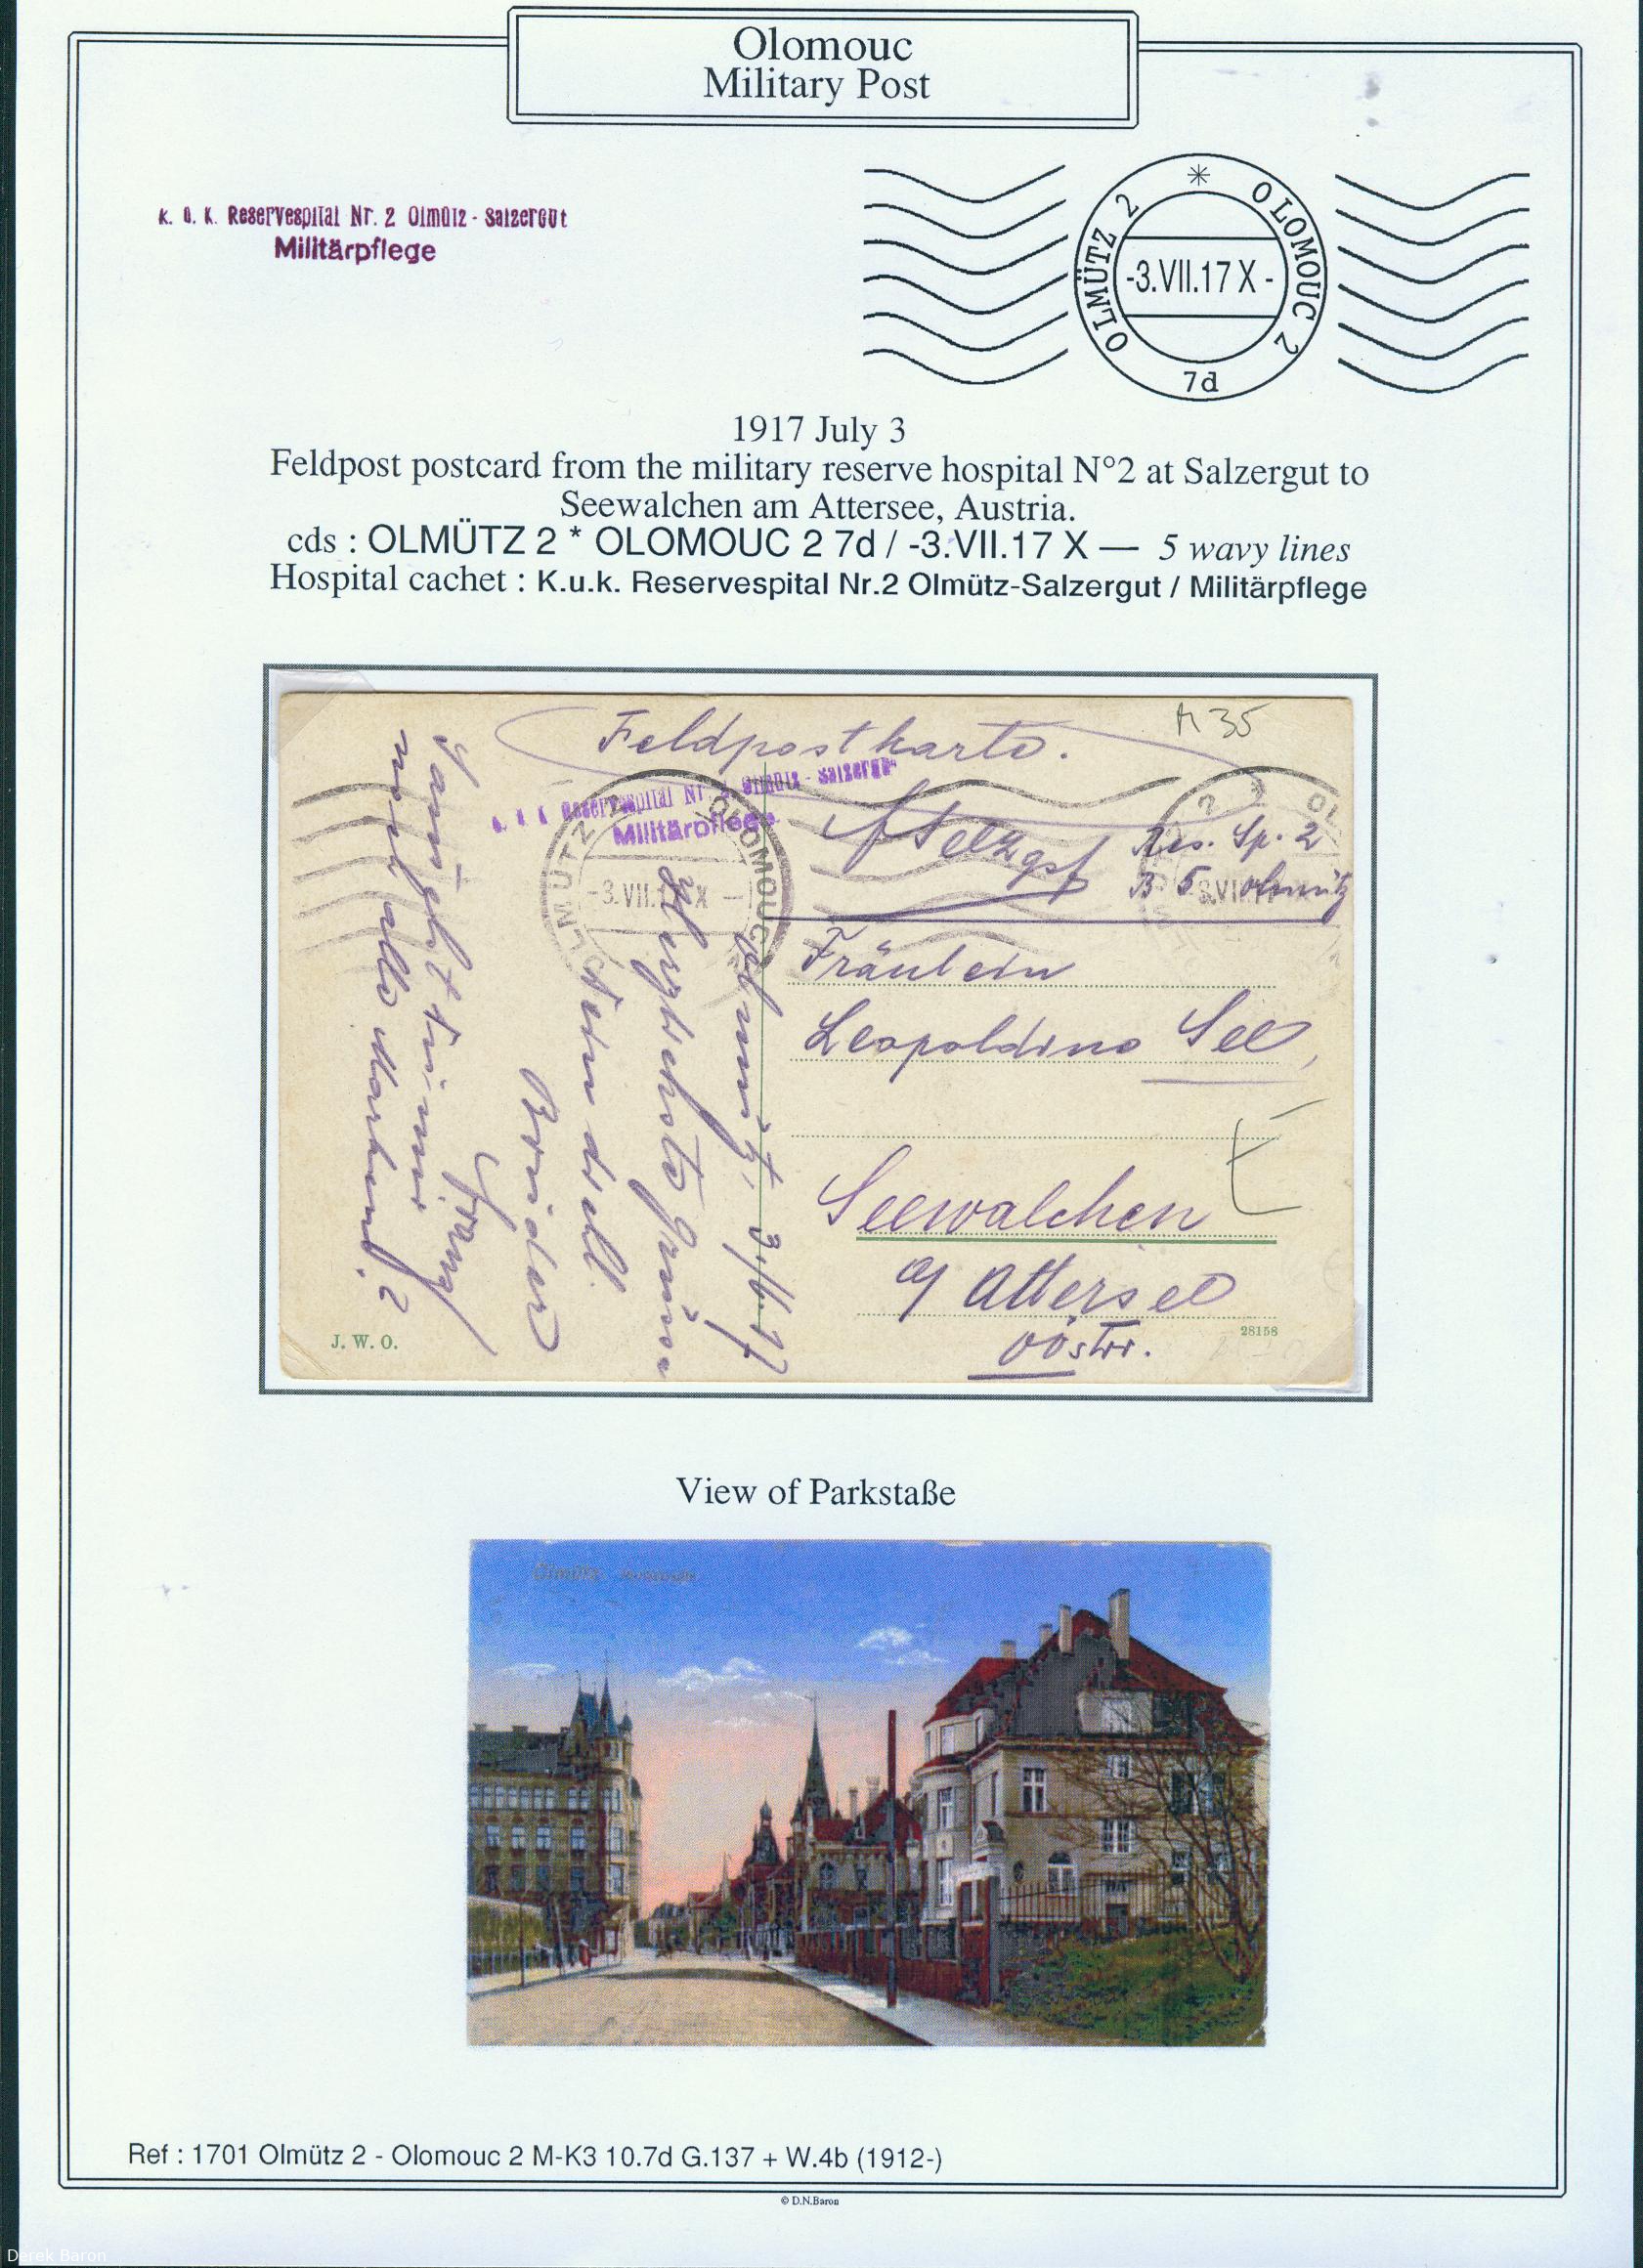 Olomouc
Military Post
K. u. K. Reservespital Nr. 2 Olmütz - Salzergut
Militärpflege
OLMÜTZ 2 * OLOMOUC 2
-3.VII.17 X -
7d
1917 July 3
Feldpost postcard from the military reserve hospital N°2 at Salzergut to
Seewalchen am Attersee, Austria.
cds : OLMÜTZ 2 * OLOMOUC 2 7d / -3.VII.17 X — 5 wavy lines
Hospital cachet : K.u.k. Reservespital Nr.2 Olmütz-Salzergut / Militärpflege
Feldpostkarte.
M 35
Reservespital Nr. 2 Olmütz - Salzergut
Militärpflege
OLMÜTZ OLOMOUC
-3.VII.17 X -
Res. Sp. 2
B 5 Olmütz
Fräulein
Leopoldine See,
Seewalchen
a/ Attersee
OÖstrr.
Olmütz,
Herzlichste Grüsse
Bruder
Franz
noch alle Marken?
J. W. O.
28158
View of Parkstaße
Olmütz
Ref : 1701 Olmütz 2 - Olomouc 2 M-K3 10.7d G.137 + W.4b (1912-)
© D.N.Baron
Derek Baron